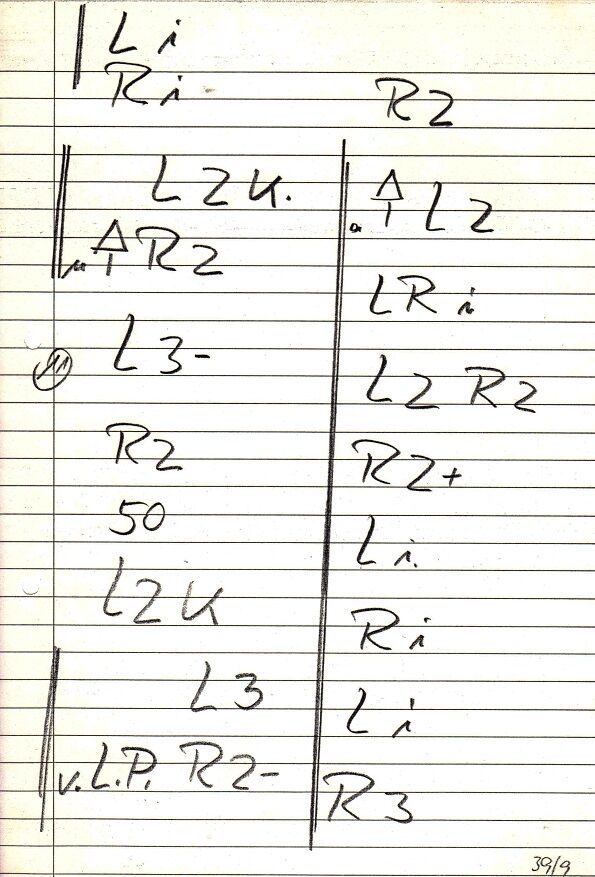 L i
R i
L 2 K.
R 2
L 3-
11
R2
50
L2 K
L 3
v. L.P. R2-
R2
L 2
L R i
L2 R2
R2+
L i.
R i
L i
R 3
39/9